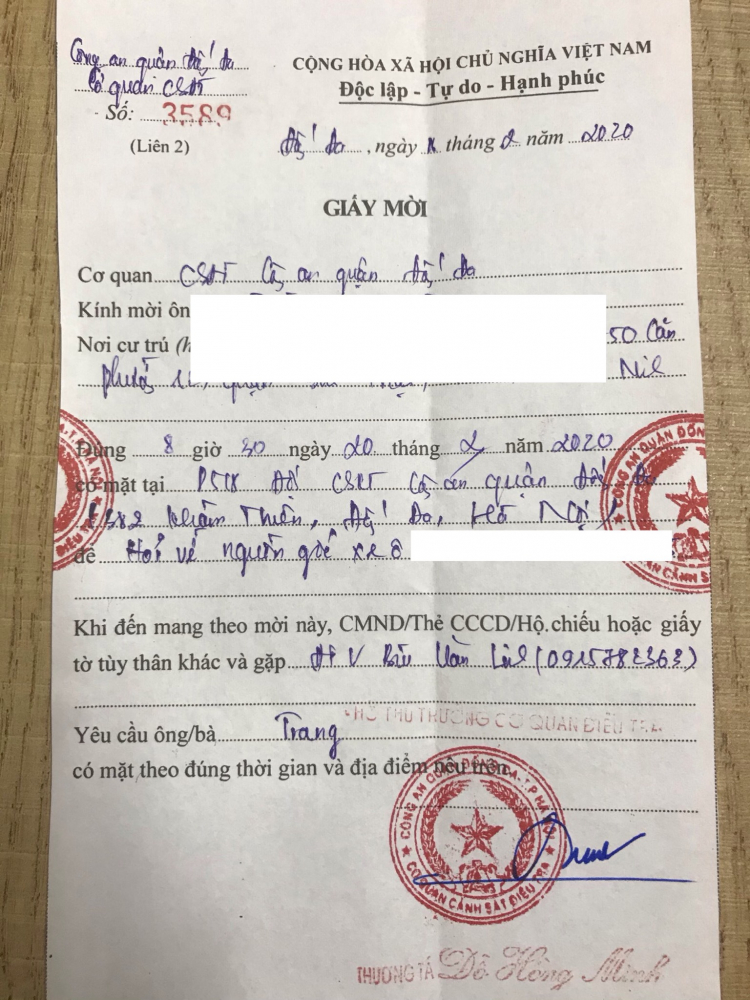 Công an quận Đống Đa
Cơ quan CSĐT
Số: 3589
(Liên 2)
CỘNG HÒA XÃ HỘI CHỦ NGHĨA VIỆT NAM
Độc lập - Tự do - Hạnh phúc
Đống Đa, ngày tháng 2 năm 2020
GIẤY MỜI
Cơ quan CSĐT Công an quận Đống Đa
Kính mời ôn
Nơi cư trú (h 50 Căn
Phường
Đúng 8 giờ 30 ngày 20 tháng 2 năm 2020
có mặt tại Đội CSĐT Công an quận Đống Đa
382 Khâm Thiên, Đống Đa, Hà Nội
để Hỏi về nguồn gốc xe ô
Khi đến mang theo mời này, CMND/Thẻ CCCD/Hộ chiếu hoặc giấy
tờ tùy thân khác và gặp ĐTV Bùi Văn (0915782363)
PHÓ THỦ TRƯỞNG CƠ QUAN ĐIỀU TRA
Yêu cầu ông/bà Trang
có mặt theo đúng thời gian và địa điểm nêu trên.
CÔNG AN QUẬN ĐỐNG ĐA - T.P HÀ NỘI
CƠ QUAN CẢNH SÁT ĐIỀU TRA
THƯỢNG TÁ Đỗ Hồng Minh